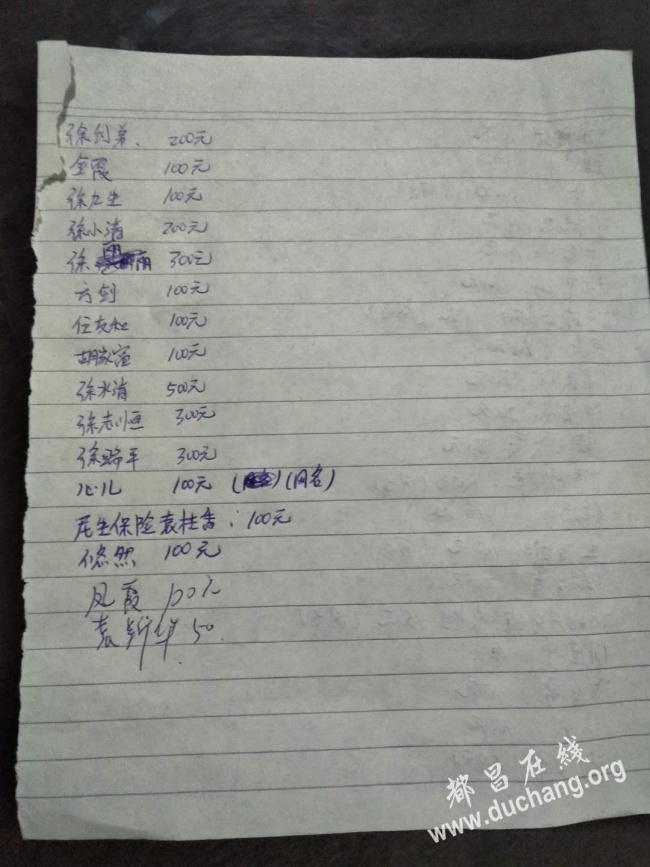 徐 弟、 200元
金霞 100元
徐九生 100元
徐小清 200元
徐 丽 300元
方剑 100元
任友和 100元
胡家 100元
徐水清 500元
徐志恒 300元
徐端平 300元
心儿 100元 (网名)
民生保险袁桂香：100元
悠然 100元
凤霞 100元
袁新华 50.
都昌在线
www.duchang.org